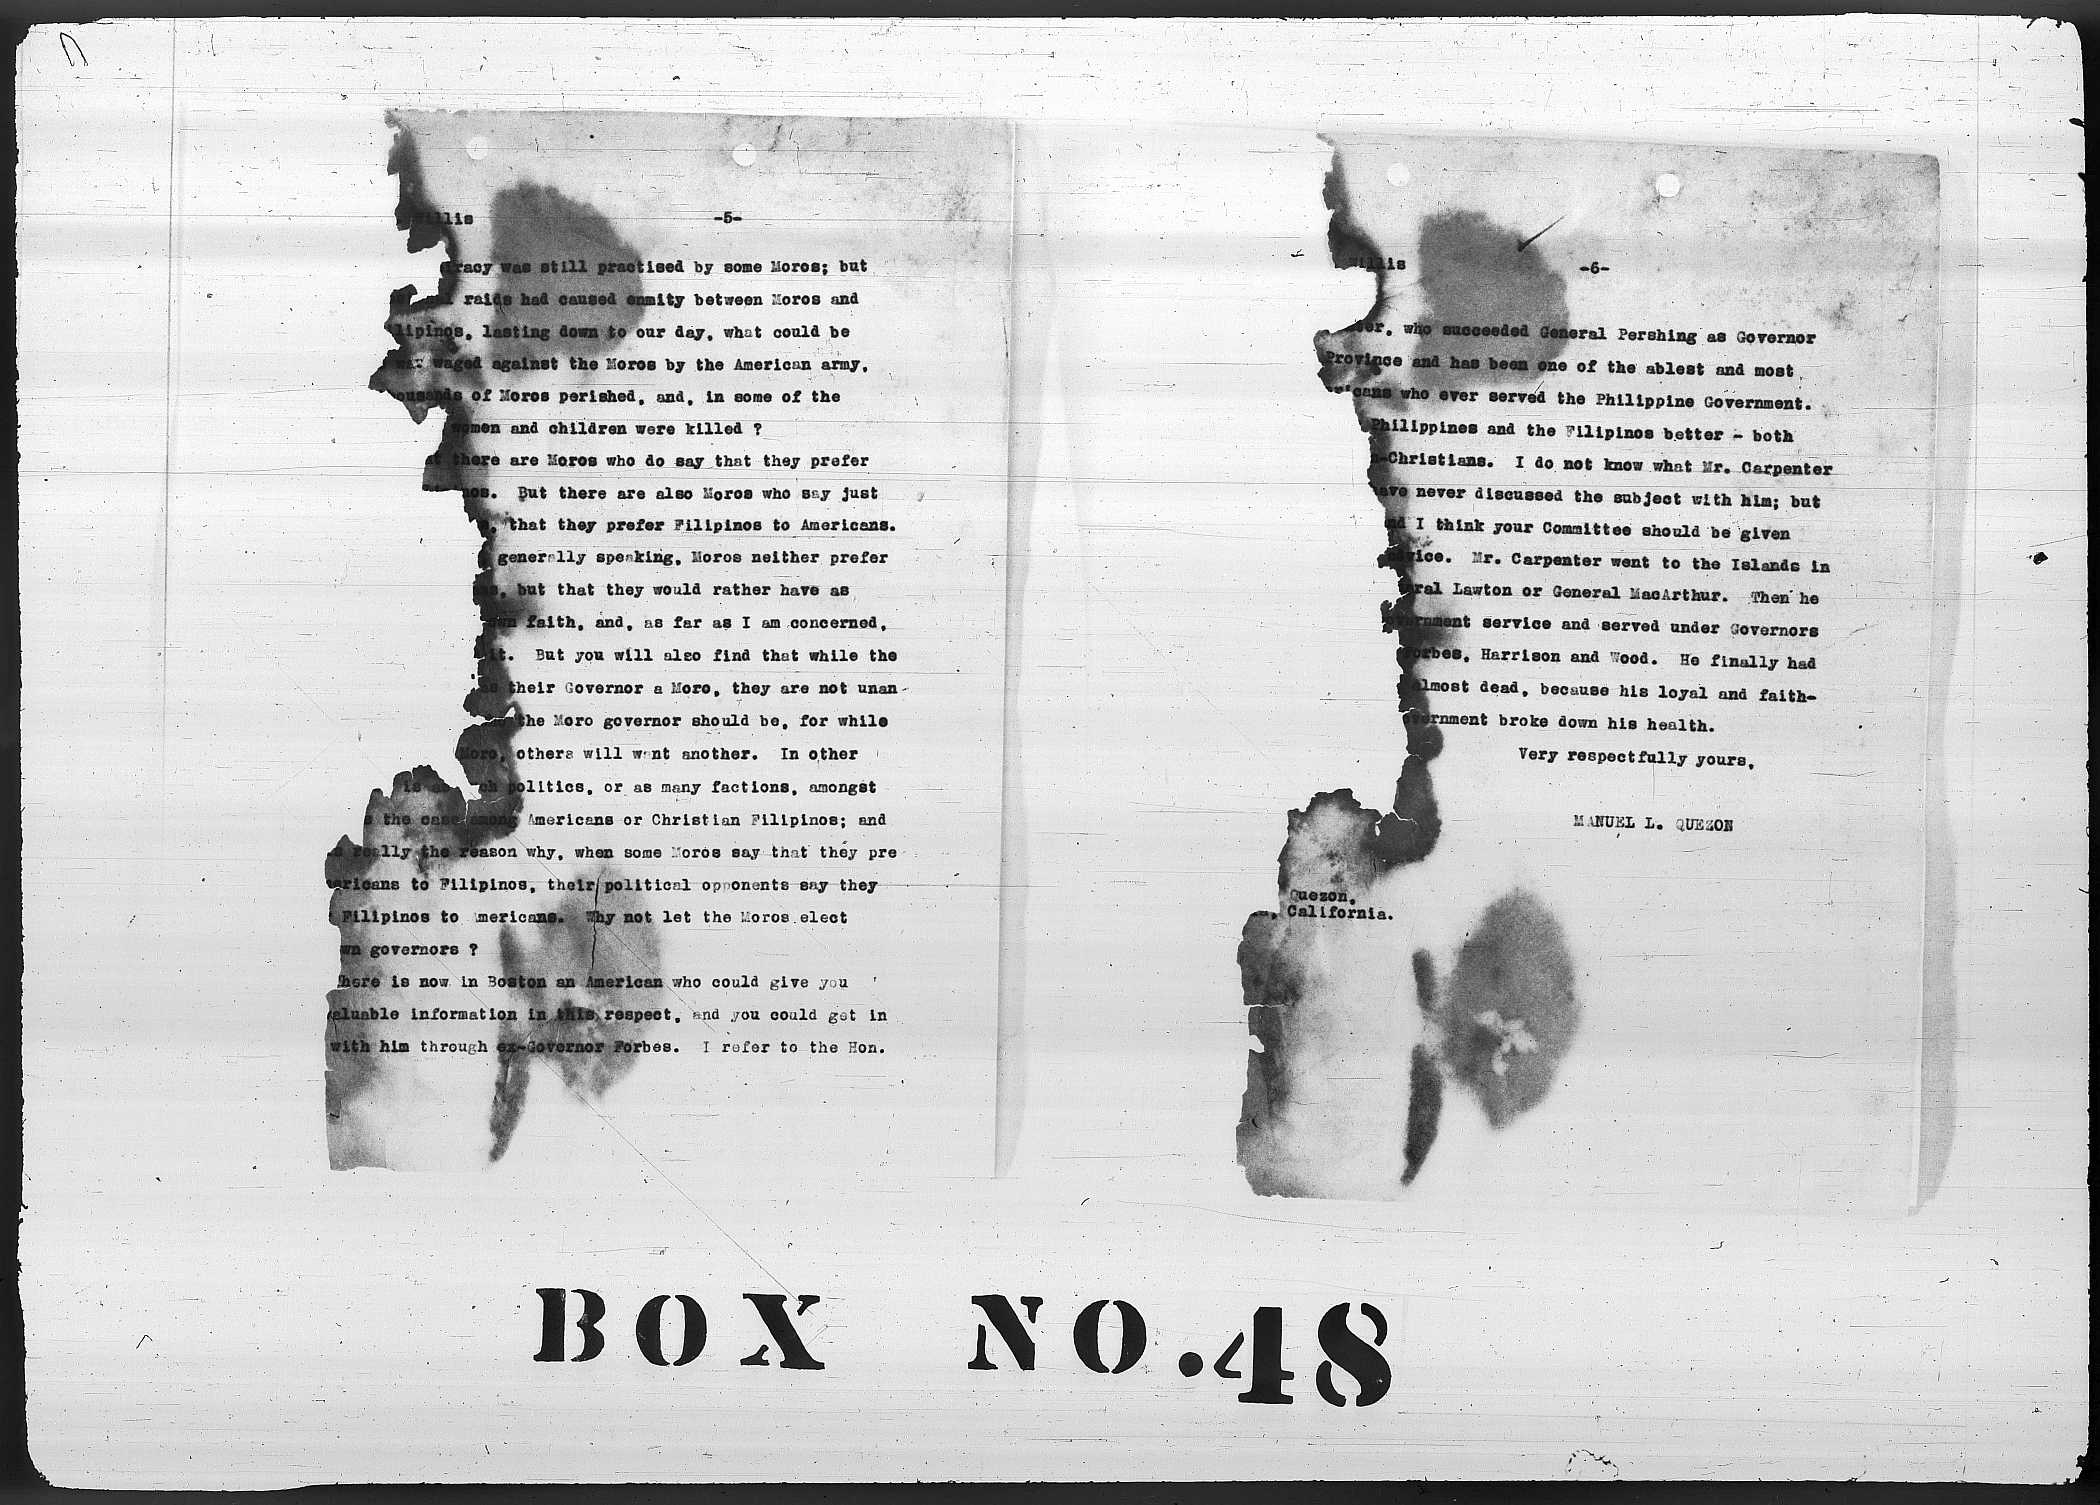 Willis -5-
racy was still practised by some Moros; but
raids had caused enmity between Moros and
lipinos, lasting down to our day, what could be
war waged against the Moros by the American army,
ousands of Moros perished, and, in some of the
women and children were killed ?
at there are Moros who do say that they prefer
nos. But there are also Moros who say just
, that they prefer Filipinos to Americans.
generally speaking, Moros neither prefer
ns, but that they would rather have as
own faith, and, as far as I am concerned,
it. But you will also find that while the
as their Governor a Moro, they are not unan-
the Moro governor should be, for while
Moro, others will want another. In other
is as ch politics, or as many factions, amongst
s the case among Americans or Christian Filipinos; and
s really the reason why, when some Moros say that they pre
ericans to Filipinos, their political opponents say they
Filipinos to mericans. Why not let the Moros elect
wn governors ?
here is now in Boston an American who could give you
aluable information in this respect, and you could get in
with him through ex-Governor Forbes. I refer to the Hon.
Willis -6-
ter, who succeeded General Pershing as Governor
Province and has been one of the ablest and most
ericans who ever served the Philippine Government.
Philippines and the Filipinos better - both
n-Christians. I do not know what Mr. Carpenter
ave never discussed the subject with him; but
nd I think your Committee should be given
advice. Mr. Carpenter went to the Islands in
eral Lawton or General MacArthur. Then he
overnment service and served under Governors
Forbes, Harrison and Wood. He finally had
almost dead, because his loyal and faith-
overnment broke down his health.
Very respectfully yours,
MANUEL L. QUEZON
Quezon,
, California.
BOX NO.48